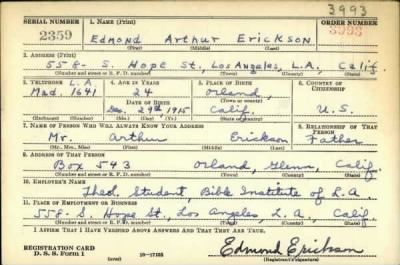 3993
SERIAL NUMBER 1. NAME (Print) ORDER NUMBER
2359 Edmond Arthur Erickson 3993
(First) (Middle) (Last)
2. ADDRESS (Print)
558- S. Hope St., Los Angeles, L.A., Calif.
(Number and street or R. F. D. number) (Town) (County) (State)
3. TELEPHONE L.A. 4. AGE IN YEARS 5. PLACE OF BIRTH 6. COUNTRY OF CITIZENSHIP
Mad. 1641 24 Orland,
DATE OF BIRTH (Town or county)
Dec. 29th, 1915 Calif. U.S.
(Exchange) (Number) (Mo.) (Day) (Yr.) (State or country)
7. NAME OF PERSON WHO WILL ALWAYS KNOW YOUR ADDRESS 8. RELATIONSHIP OF THAT PERSON
Mr. Arthur Erickson Father
(Mr., Mrs., Miss) (First) (Middle) (Last)
9. ADDRESS OF THAT PERSON
Box 543 Orland, Glenn, Calif.
(Number and street or R. F. D. number) (Town) (County) (State)
10. EMPLOYER'S NAME
Theol. Student, Bible Institute of L.A.
11. PLACE OF EMPLOYMENT OR BUSINESS
558- S. Hope St., Los Angeles, L.A., Calif.
(Number and street or R. F. D. number) (Town) (County) (State)
I AFFIRM THAT I HAVE VERIFIED ABOVE ANSWERS AND THAT THEY ARE TRUE.
REGISTRATION CARD
D. S. S. Form 1 (over) 16-17105 Edmond Erickson
(Registrant's signature)